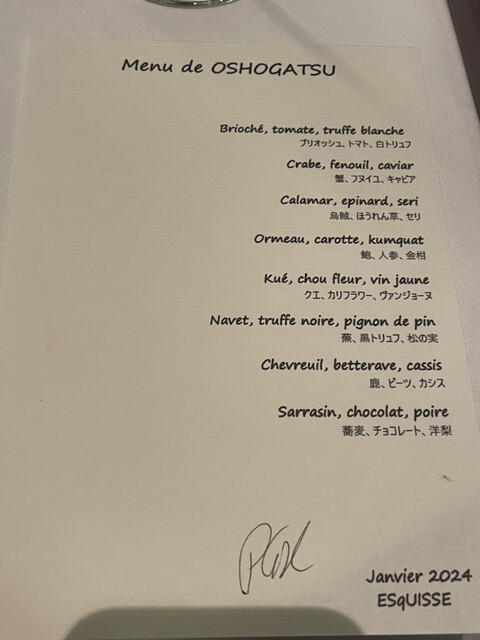 Menu de OSHOGATSU
Brioché, tomate, truffe blanche
ブリオッシュ、トマト、白トリュフ
Crabe, fenouil, caviar
蟹、フヌイユ、キャビア
Calamar, epinard, seri
烏賊、ほうれん草、セリ
Ormeau, carotte, kumquat
鮑、人参、金柑
Kué, chou fleur, vin jaune
クエ、カリフラワー、ヴァンジョーヌ
Navet, truffe noire, pignon de pin
蕪、黒トリュフ、松の実
Chevreuil, betterave, cassis
鹿、ビーツ、カシス
Sarrasin, chocolat, poire
蕎麦、チョコレート、洋梨
Janvier 2024
ESqUISSE